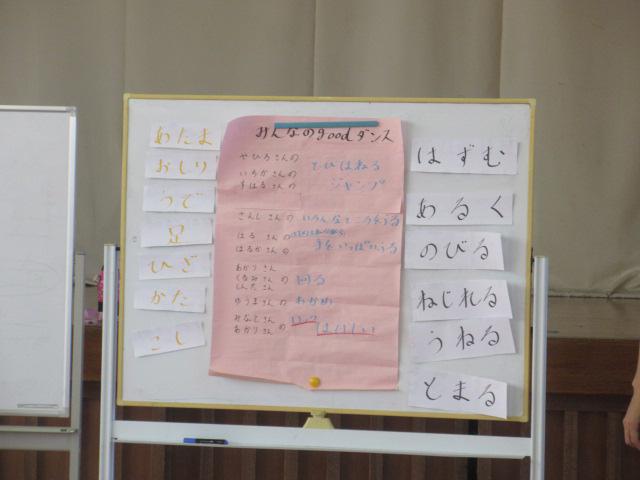 あたま
おしり
うで
足
ひざ
かた
こし
みんなのgoodダンス
やひろさんの
いちかさんの
すはるさんの
とびはねる
ジャンプ
さんしさんの
はるさんの
はるかさんの
手をいっぱいふる
あかりさん
くるみさんの
しんたさん
回る
ゆうまさんの
わかめ
みなとさんの
あかりさんの
はずむ
あるく
のびる
ねじれる
うねる
とまる